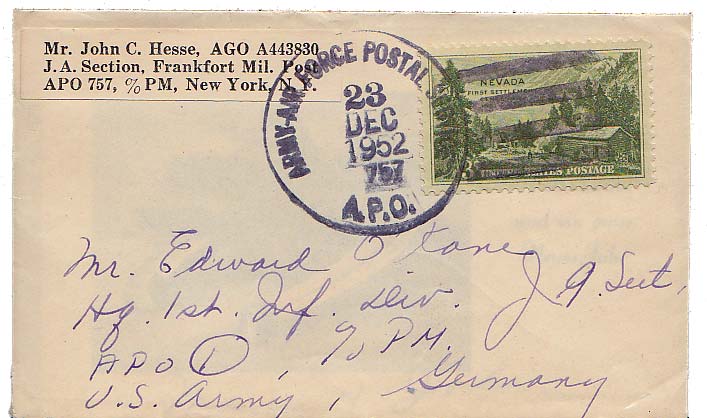 Mr. John C. Hesse, AGO A443830
J.A. Section, Frankfort Mil. Post
APO 757, c/o PM, New York, N.Y.
ARMY-AIR FORCE POSTAL
23
DEC
1952
757
A.P.O.
NEVADA
FIRST SETTLEMENT
3¢ UNITED STATES POSTAGE
Mr. Edward O'Kane
J A. Sect,
Hq. 1st. Inf. Div.
APO 1, c/o PM.
U.S. Army, Germany